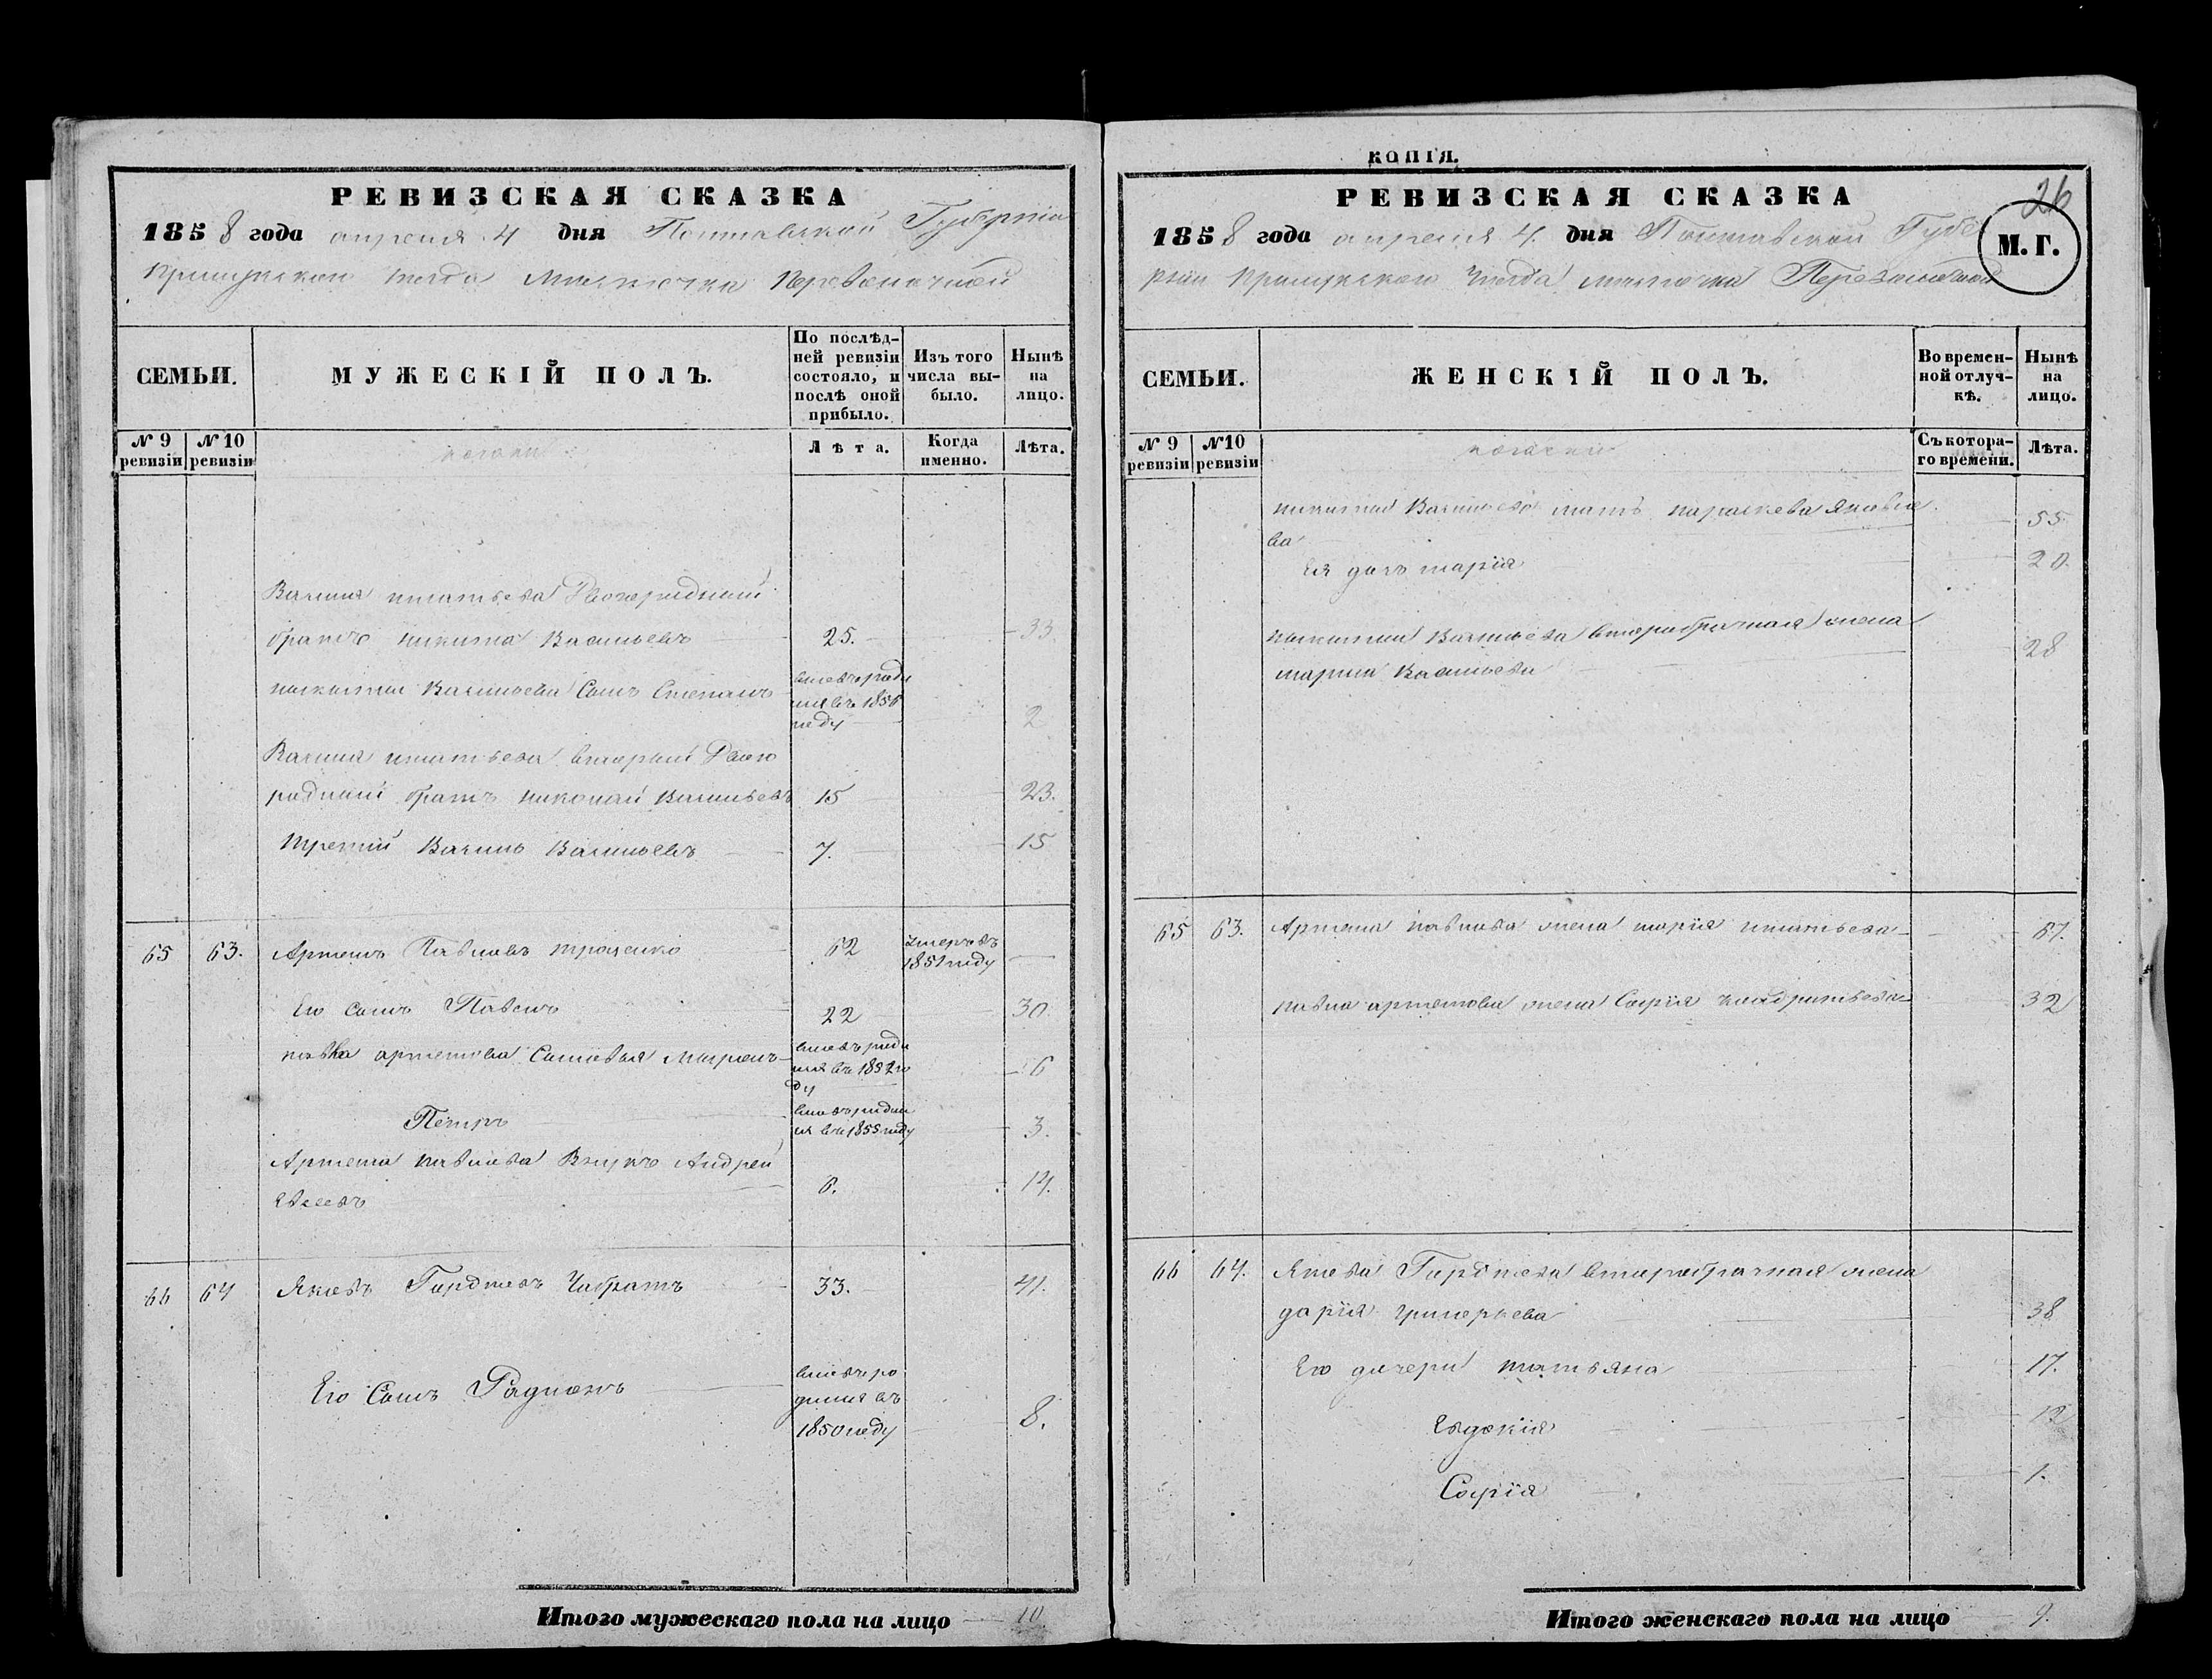 РЕВИЗСКАЯ СКАЗКА
1858 года апреля 4 дня Полтавской Губернiи
Прилукскаго уезда Местечка Переволочной
СЕМЬИ.
МУЖЕСКІЙ ПОЛЪ.
По послѣд-
ней ревизіи
состояло, и
послѣ оной
прибыло.
Изъ того
числа вы-
было.
Нынѣ
на
лицо.
№ 9
ревизіи
№ 10
ревизіи
козаки
Лѣта.
Когда
именно.
Лѣта.
Василия Игнатьева Двоюродний
братъ Никита Васильевъ 25. 33.
Никиты Васильева Сынъ Степанъ вновь роди
лся въ 1856
году 2
Василия Игнатьева вторый Двою
родний братъ Николай Васильевъ 15 23.
Третий Василь Васильевъ 7. 15
65 63. Артемъ Павловъ 62 умеръ въ
1851 году
Его Сынъ Павелъ 22 30.
Павла Артемова Сыновья Миронъ вновь роди
лся въ 1852 го
ду 6
Петръ вновь роди
лся въ 1855 году 3.
Артема Павлова Внукъ Андрей
6. 14.
66 64 Яковъ Гордеевъ Чабратъ 33. 41.
Его Сынъ Радионъ вновь ро
дился въ
1850 году 8.
Итого мужескаго пола на лицо 10.
КОПІЯ.
26
РЕВИЗСКАЯ СКАЗКА
М. Г.
1858 года апреля 4. дня Полтавской Губе
рнии Прилукскаго уезда местечка Переволочной
СЕМЬИ.
ЖЕНСКІЙ ПОЛЪ.
Во времен-
ной отлуч-
кѣ.
Нынѣ
на
лицо.
№ 9
ревизіи
№ 10
ревизіи
козачки
Съ котора-
го времени.
Лѣта.
Никиты Васильева мать Параскева Яковле
ва 55
Ея дочь Марія 20.
Никиты Васильева второбрачная жена
Марина Васильева 28
65 63. Артема Павлова жена Марія Игнатьева 67.
Павла Артемова жена Софія Кондратьева 32
66 64. Якова Гордеева второбрачная жена
Дарія Григорьева 38
Его дочери Татьяна 17.
Евдокія 12
Софія 1.
Итого женскаго пола на лицо 9.